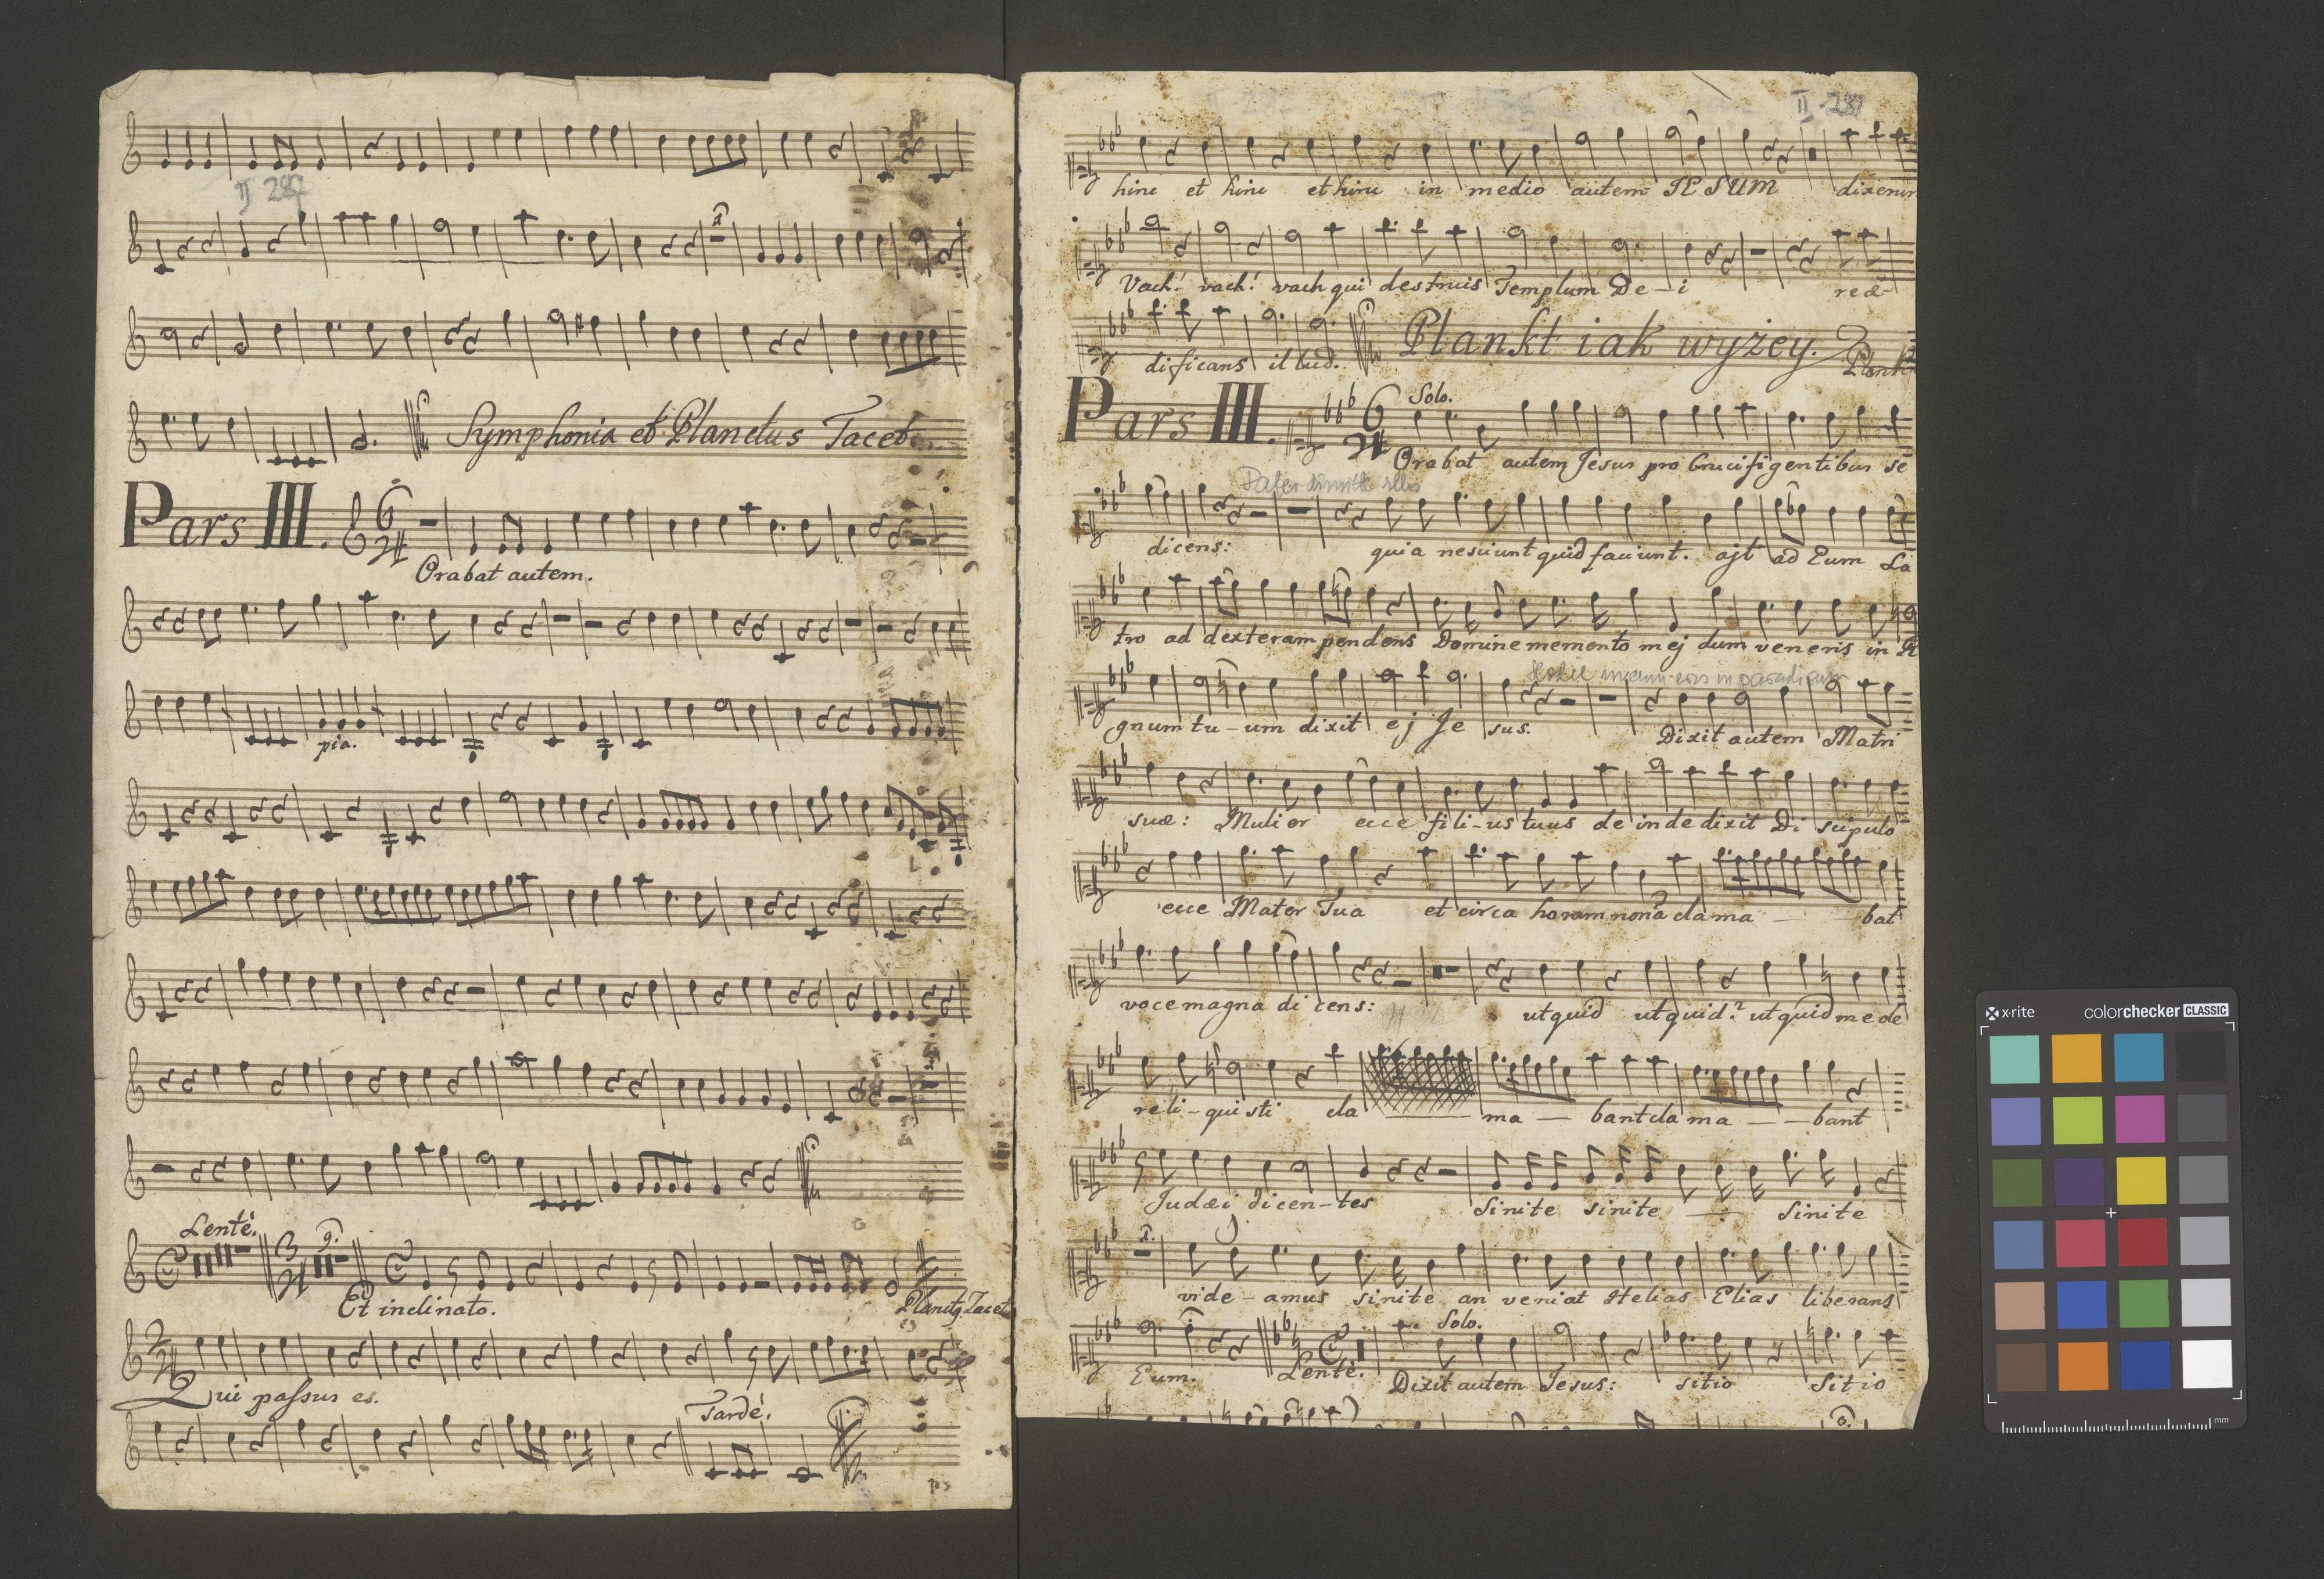 II 282
Symphonia et Planctus Tacet
Pars III. 6 24
Orabat autem.
pia.
Lentè.
Et inclinato.
Planctq Tacet
Qui passus es.
Tardè.
II 281
hinc et hinc et hinc in medio autem JESUM dixerun
Vach! vach! vach qui destruis Templum De-i reæ-
dificans illud. Plankt iak wyżey.
Pars III. 6 24 Solo.
Orabat autem Jesus pro Crucifigentibus se
Pater dimitte illis
dicens: quia nesciunt quid faciunt. ajt ad Eum La
tro ad dexteram pendens Domine memento mej dum veneris in R
Hodie mecum eris in paradiso
gnum tu-um dixit ej Je sus. Dixit autem Matri
suæ: Mulier ecce fili-us tuus deinde dixit Di scipulo
ecce Mater Tua et circa horam nonã clama bat
voce magna di cens: utquid utquid? utquid me de
reli-quisti cla ma bant cla ma bant
Judæi dicen-tes Sinite sinite Sinite
vide-amus sinite an veniat Helias Elias liberans
Eum. Lentè. Solo. Dixit autem Jesus: sitio Sitio
x-rite colorchecker CLASSIC
mm